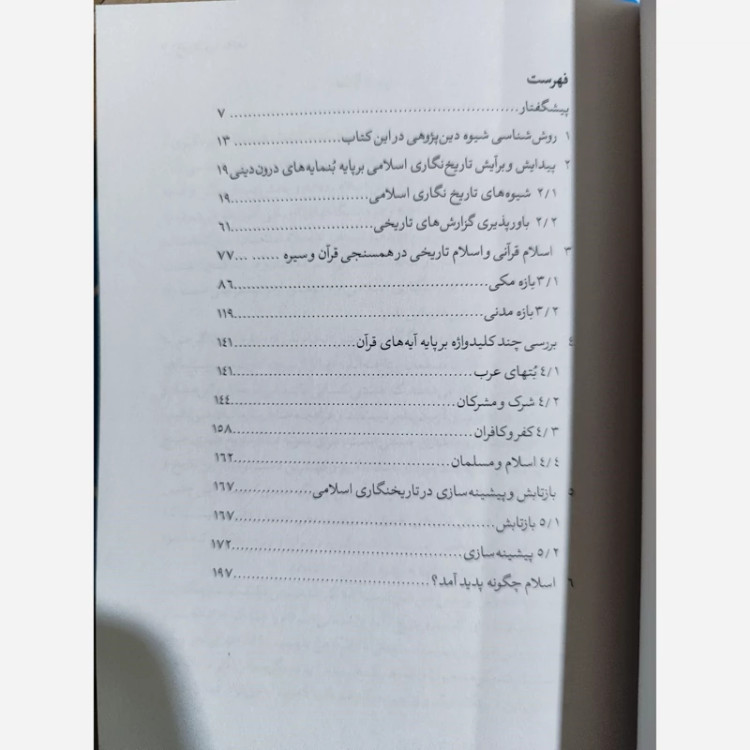 فهرست
پیشگفتار ۷
۱ روش‌شناسی شیوه دین‌پژوهی در این کتاب ۱۳
۲ پیدایش و برآیش تاریخ‌نگاری اسلامی بر پایه بُنمایه‌های درون‌دینی ۱۹
۲/۱ شیوه‌های تاریخ نگاری اسلامی ۱۹
۲/۲ باورپذیری گزارش‌های تاریخی ۶۱
۳ اسلام قرآنی و اسلام تاریخی در همسنجی قرآن و سیره ۷۷
۳/۱ بازه مکی ۸۶
۳/۲ بازه مدنی ۱۱۹
٤ بررسی چند کلیدواژه بر پایه آیه‌های قرآن ۱٤۱
٤/۱ بُتهای عرب ۱٤۱
٤/۲ شرک و مشرکان ۱٤٤
٤/۳ کفر و کافران ۱۵۸
٤/٤ اسلام و مسلمان ۱۶۲
۵ بازتابش و پیشینه‌سازی در تاریخنگاری اسلامی ۱۶۷
۵/۱ بازتابش ۱۶۷
۵/۲ پیشینه‌سازی ۱۷۲
۶ اسلام چگونه پدید آمد؟ ۱۹۷